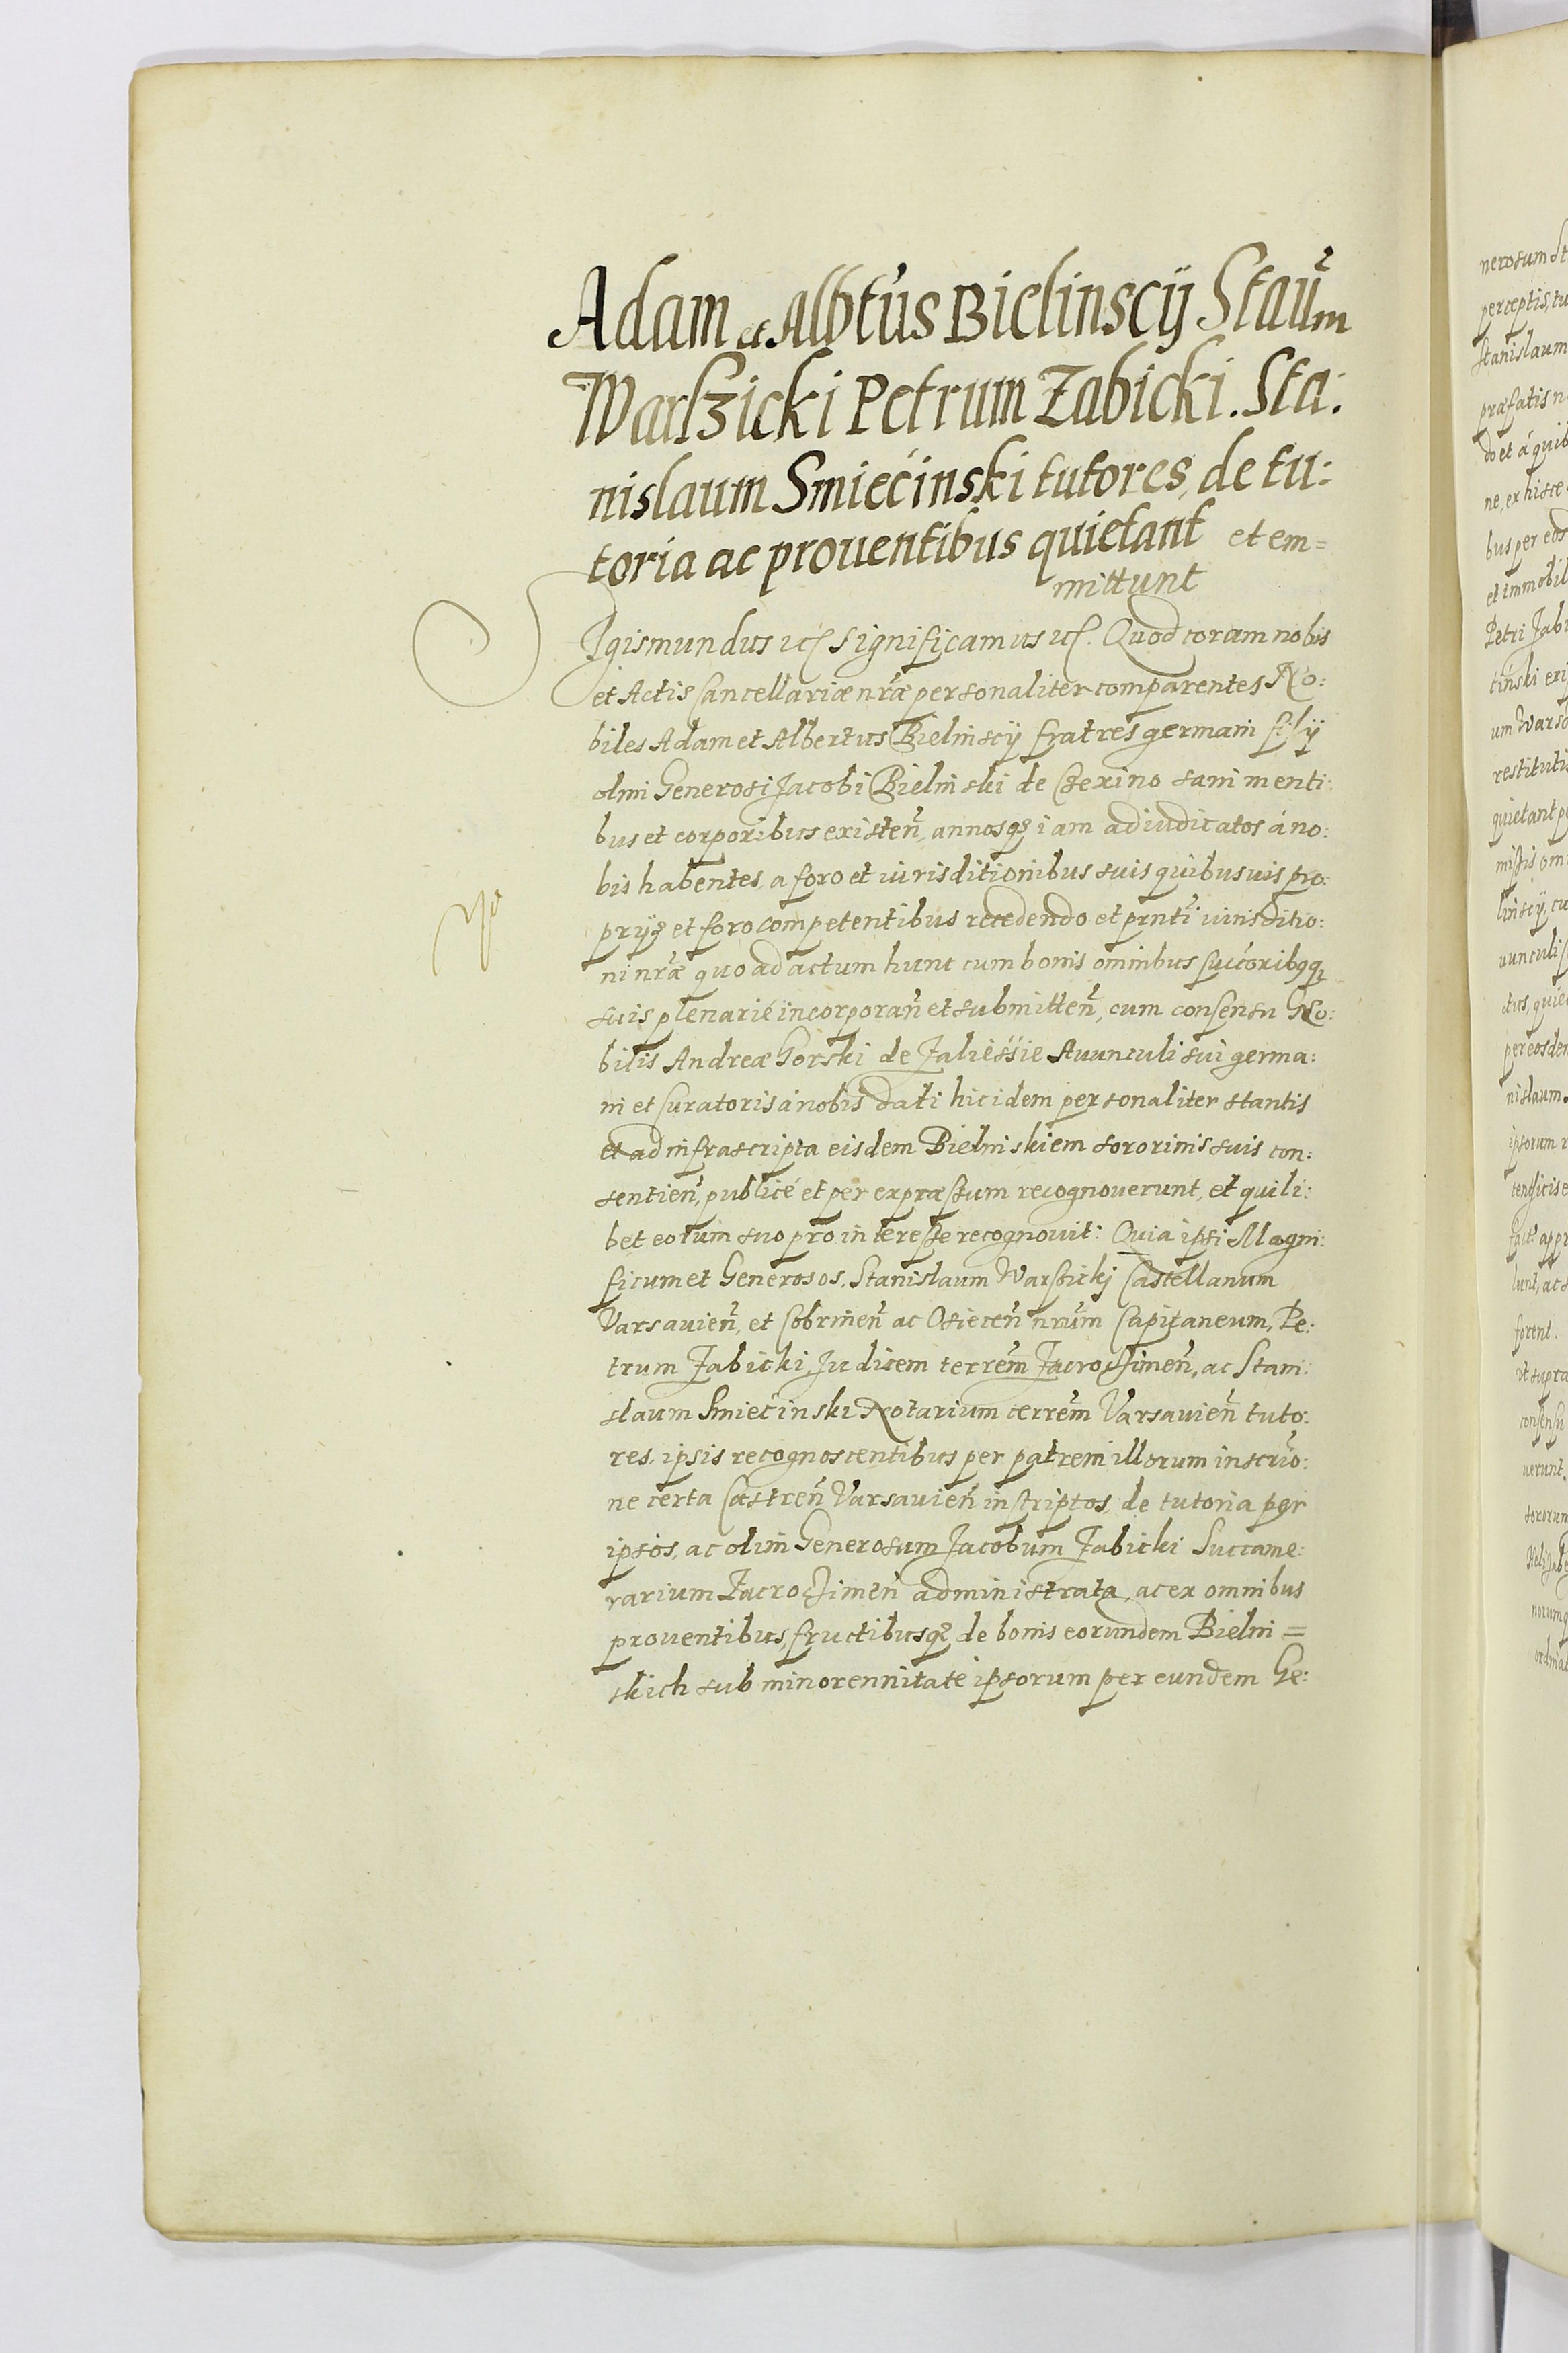 Adam et Albtus Bielinscÿ Staũm
Warszicki Petrum Zabicki. Sta:
nislaum Smiećinski tutores, de tu:
toria ac prouentibus quietant et em=
mittunt
Sigismundus etc Significamus etc. Quod coram nobis
et Actis Cancellariæ nr̃æ personaliter comparentes No:
biles Adam et Albertus Bielinscÿ fratres germani filÿ
olim Generosi Jacobi Bielinski de Czexino sani menti:
bus et corporibus existeñ, annosq3 iam adiudicatos á no:
bis habentes, a foro et iurisditionibus suis quibusuis pro:
prÿs et foro competentibus recedendo et prnti iurisditio:
ni nr̃æ quo ad actum hunc cum bonis omnibus succoribqq3
suis plenarié incorporañ et submitteñ, cum consensu GNo:
bilis Andreæ Gorski de Zalieśsie Auunculi sui germa:
ni et Curatoris á nobis dati hic idem personaliter stantis
et ad infrascripta eisdem Bielinskiem sororinis suis con:
sentieñ, publicé et per expræssum recognouerunt, et quili:
bet eorum suo pro interesse recognouit: Quia ipsi Magni:
ficum et Generosos, Stanislaum Warszicki Castellanum
Varsauieñ, et Cobrineñ ac Osieceñ nrũm Capitaneum, Pe:
trum Zabicki, Judicem terrem̃ Zacroczimeñ, ac Stani:
slaum Smiećinski Notarium terrem̃ Varsauieñ tuto:
res, ipsis recognoscentibus per patrem illorum inscrio:
ne certa Castreñ Varsauieñ inscriptos, de tutoria per
ipsos, ac olim Generosum Jacobum Zabicki Succame:
rarium Zacroczimeñ administrata, ac ex omnibus
prouentibus, fructibusq3 de bonis eorundem Bielin=
skich sub minorennitate ipsorum per eundem Ge: